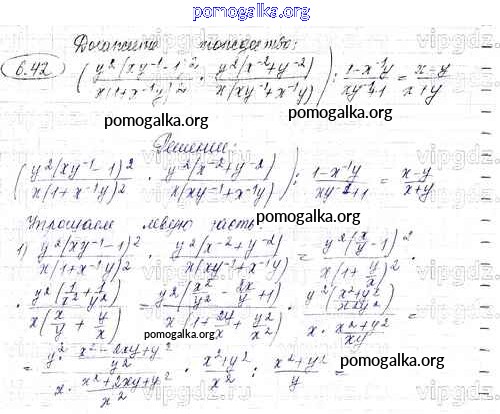 pomogalka.org
Докажите тождество:
6.42 (y²(xy⁻¹-1)²/x(1+x⁻¹y)² · y²(x⁻²+y⁻²)/x(xy⁻¹+x⁻¹y)) : 1-x⁻¹y/xy⁻¹+1 = x-y/x+y
pomogalka.org
pomogalka.org
Решение:
(y²(xy⁻¹-1)²/x(1+x⁻¹y)² · y²(x⁻²+y⁻²)/x(xy⁻¹+x⁻¹y)) : 1-x⁻¹y/xy⁻¹+1 = x-y/x+y
pomogalka.org
Упрощаем левую часть:
1) y²(xy⁻¹-1)²/x(1+x⁻¹y)² · y²(x⁻²+y⁻²)/x(xy⁻¹+x⁻¹y) = y²(x/y-1)²/x(1+y/x)² ·
· y²(1/x²+1/y²)/x(x/y+y/x) = y²(x²/y²-2x/y+1)/x(1+2y/x+y²/x²) · y²(x²+y²/x²y²)/x·x²+y²/xy =
pomogalka.org
= y²·x²-2xy+y²/y²/x·x²+2xy+y²/x² · x²+y²/x² : x²+y²/y =
pomogalka.org
vipgdz.com